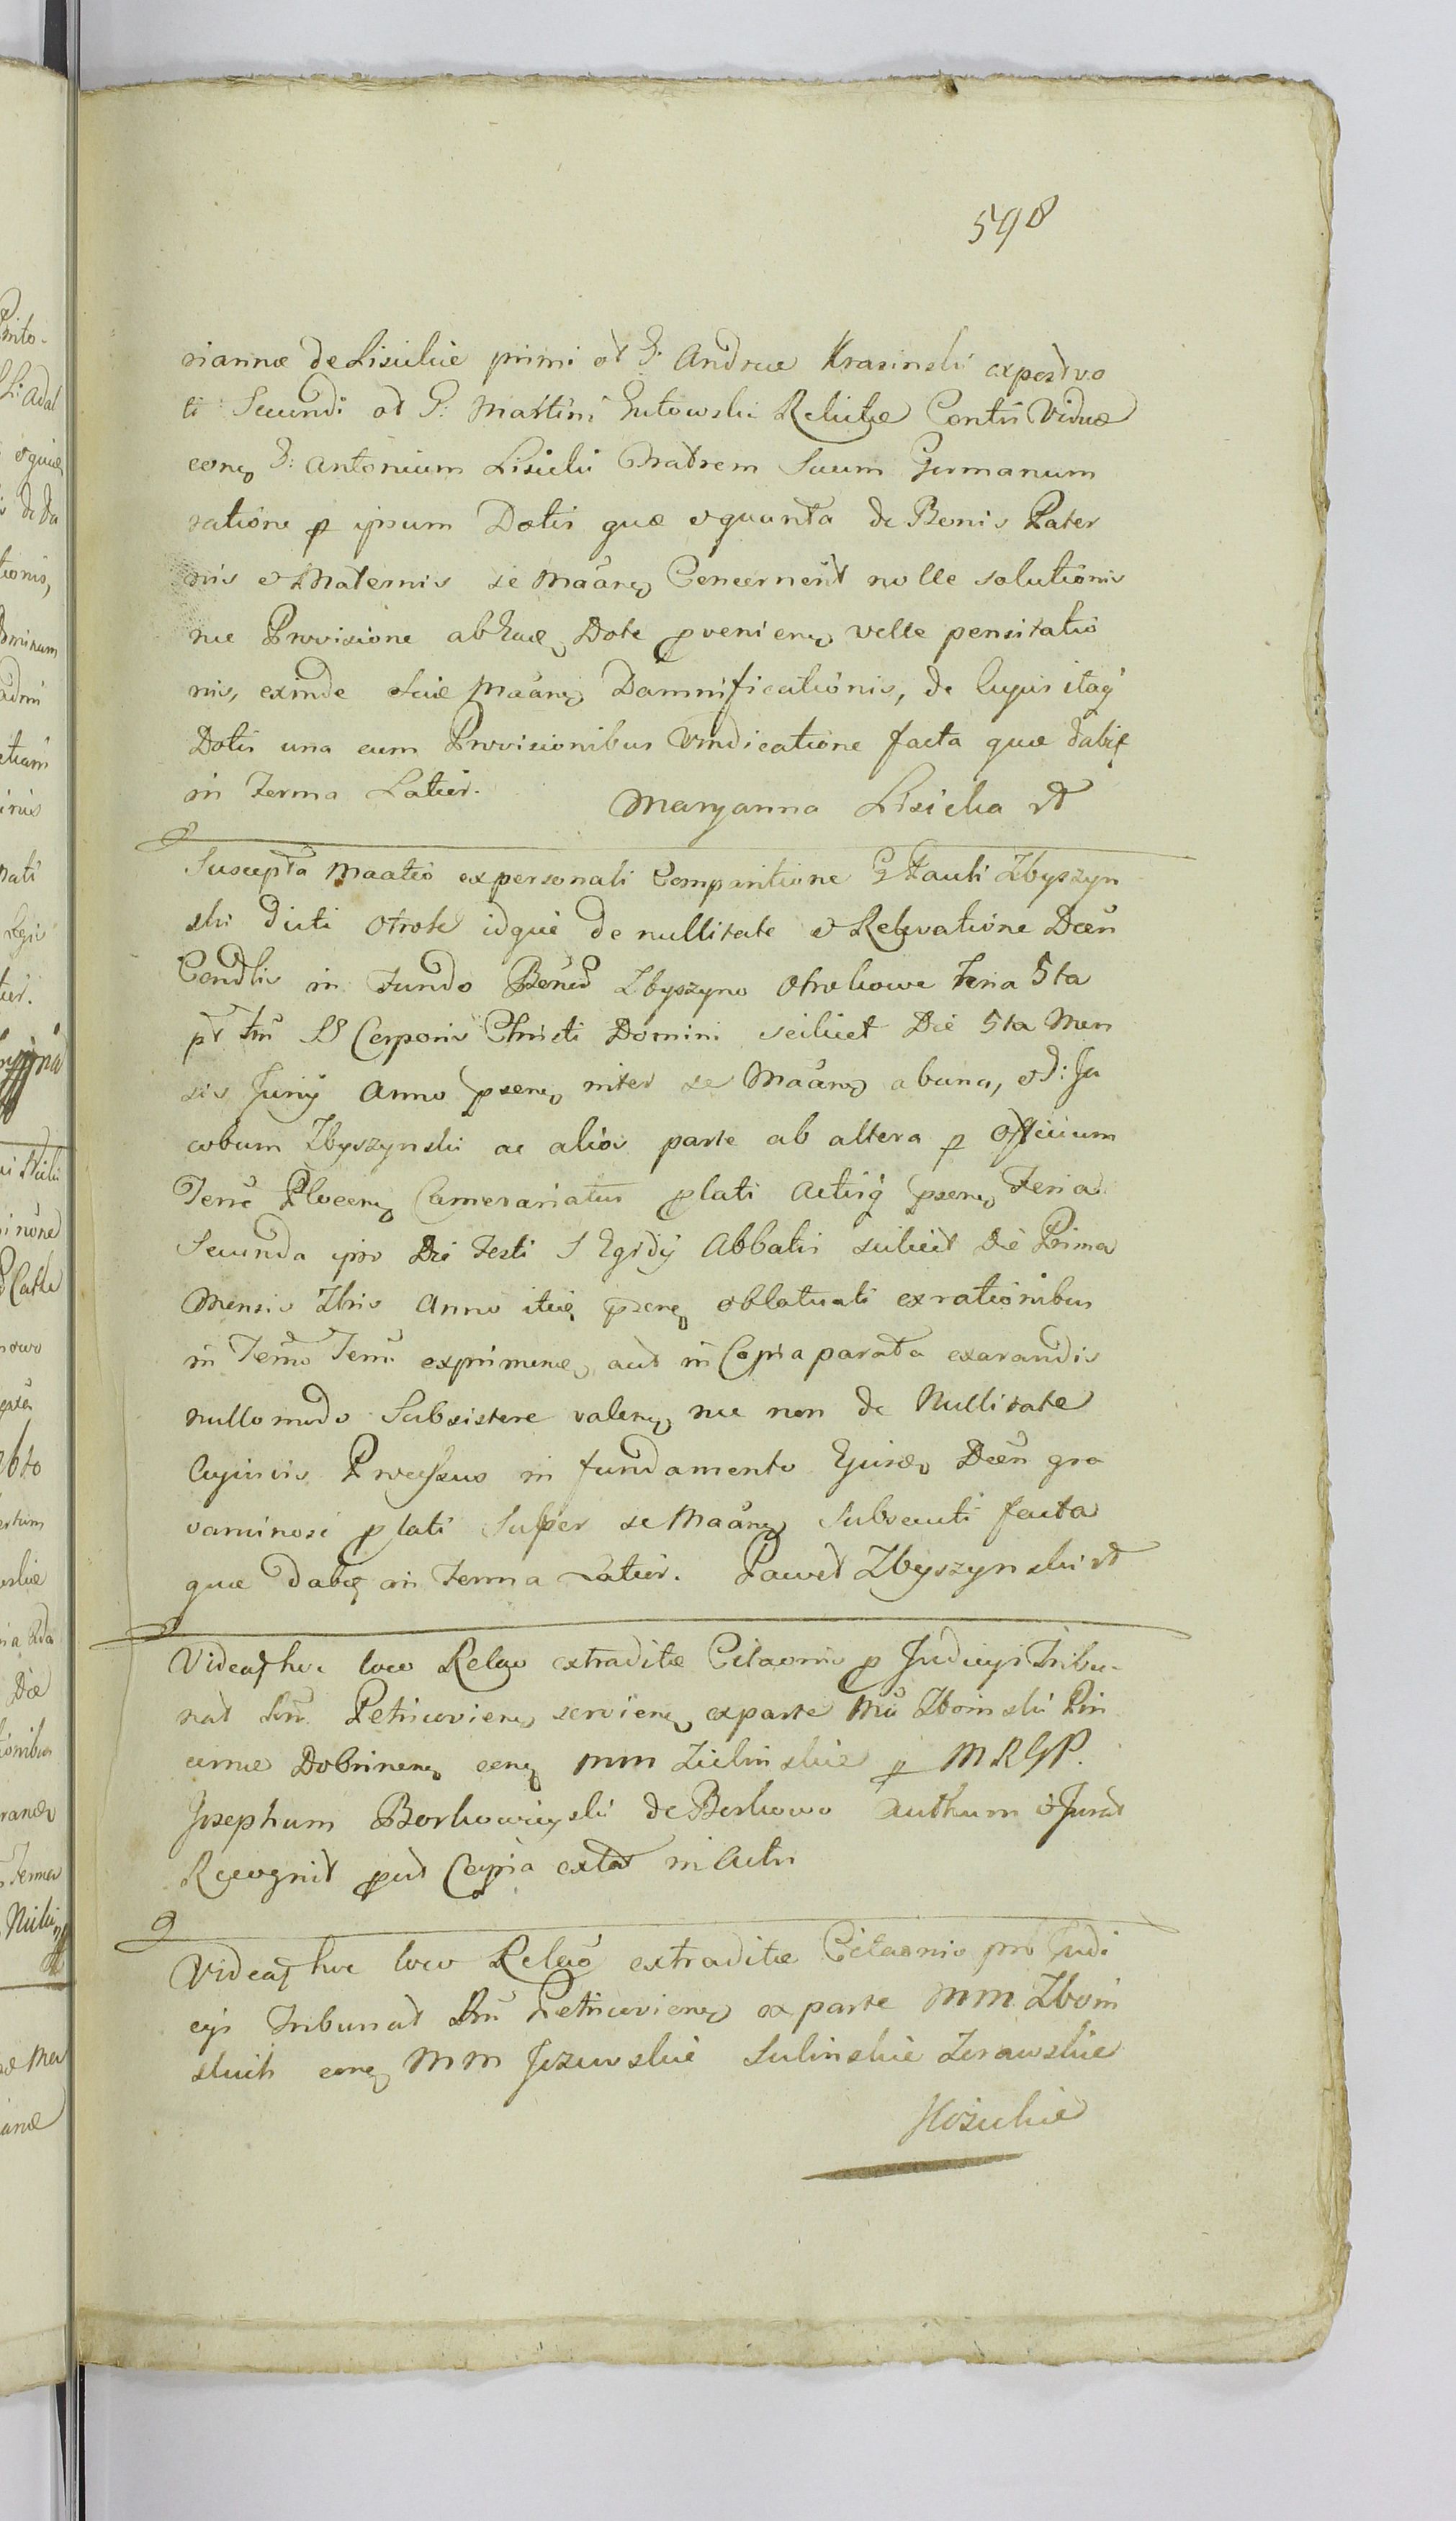 598
riannæ de Lisickie primi ol G: Andreæ Krasinski ex post vo
ti Secundi ol G: Martini Gutowski Relictæ Contis Viduæ
conq G: Antonium Lisicki Fratrem Suum Germanum
ratione p ipsum Dotis quæ et quanta de Bonis Pater
nis et Maternis se Maãnq Concernent nolle solutionis
nec Provisione ab hac Dote pvenienq velle pensitatio
nis, exinde Suæ Maãnq Damnificationis, de Cujus itaq
Dotis una cum Provisionibus Vindicatione facta quæ dabit
in Termo Latior.
Maryanna Lisicka
Suscepta Maatio ex personali Comparitione G Pauli Zbyszyn
ski dicti Otrok idque de nullitate et Relevatione Decti
Condlis in Fundo Bonor Zbyszyno Otrokowe Feria 5ta
pt Fm SS Corporis Christi Domini scilicet Die 5ta Men
sis Junÿ Anno psenq inter se Maãnq ab una, et G: Ja
cobum Zbyszynski ac alios parte ab altera p Officium
Terr Plocenq Camerariatus plati Actisq psenq Feria
Secunda ipso Die Festi S Egidÿ Abbatis scilicet Die Prima
Mensis 7bris Anno itiq psenq oblatuati ex rationibus
in Termo Term exprimend aut in Copia parata exarandis
nullo modo Subsistere valenq nec non de Nullitate
Cujusvis Processus in fundamento Ejusd Decti gra
vaminosi plati Super se Maãnq Subsecuti facta
quæ dabit in Termo Latior. Paweł Zbyszynski
Videat hoc loco Relao extraditæ Citaonis p Judicÿs Tribu-
nal Petricovienq servienq ex parte M Zboinski Pin
cernæ Dobrinenq conq MM Zielinskie p MRGP.
Josephum Borkowicyski de Borkowo Authum et Jurat
Recognit put Copia extat in Actis
Videat hoc loco Relao extraditæ Citaonis pro Judi
cÿs Tribunal Petricovienq ex parte MM Zboin
skich conq MM Jezewskie Sulinskie Zerawskie
Kozickie